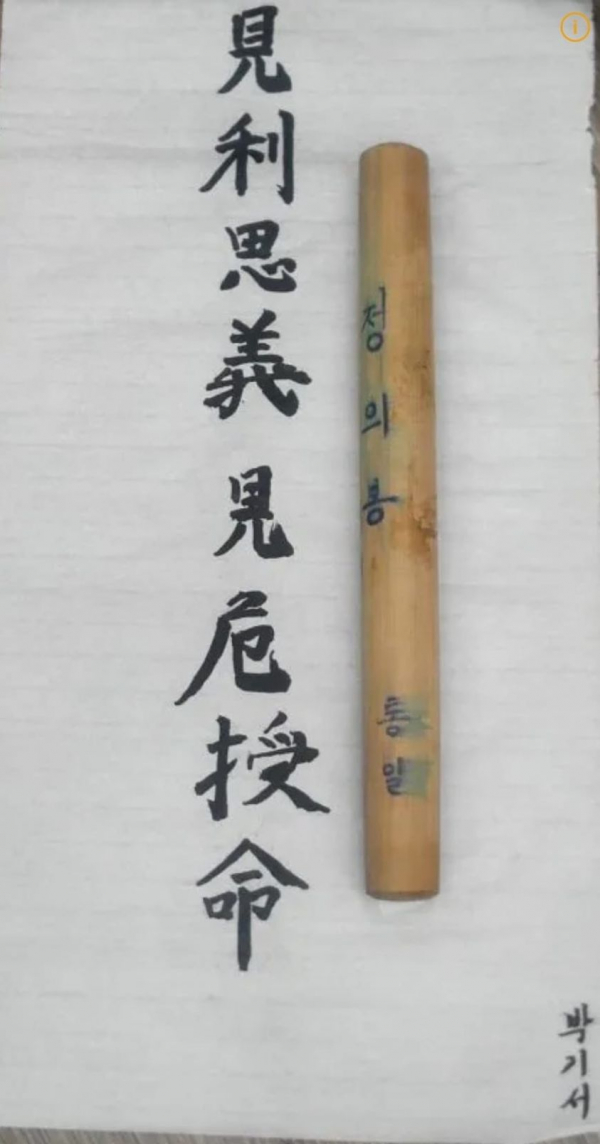 見利思義見危授命
정의봉
통일
박기서